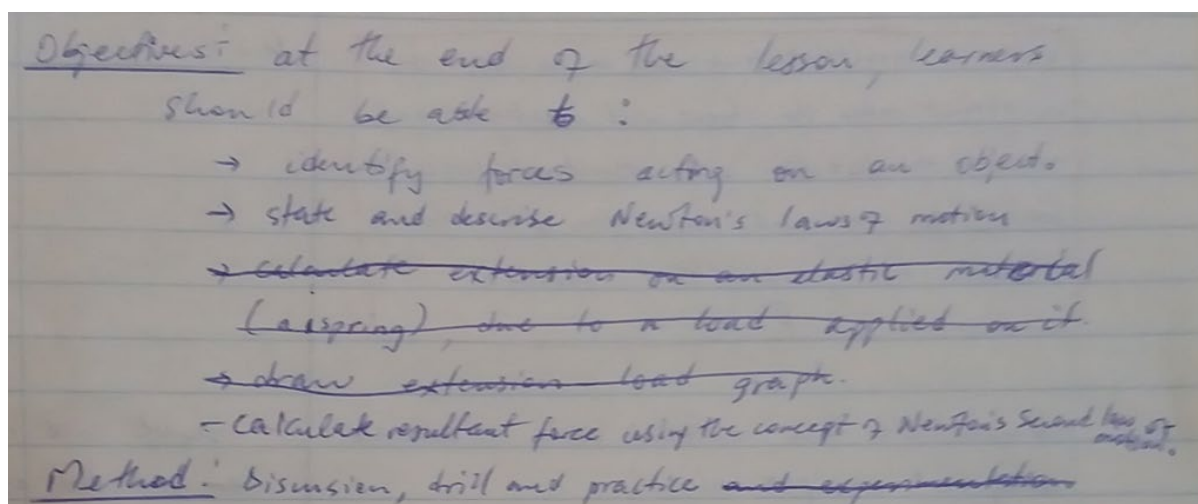 Objectives:- at the end of the lesson, learners
should be able to :
→ identify forces acting on an object.
→ state and describe Newton's laws of motion
→ calculate extension on an elastic material
(a spring), due to a load applied on it.
→ draw extension-load graph.
- calculate resultant force using the concept of Newton's Second law of motion.
Method: Discussion, drill and practice and experimentation